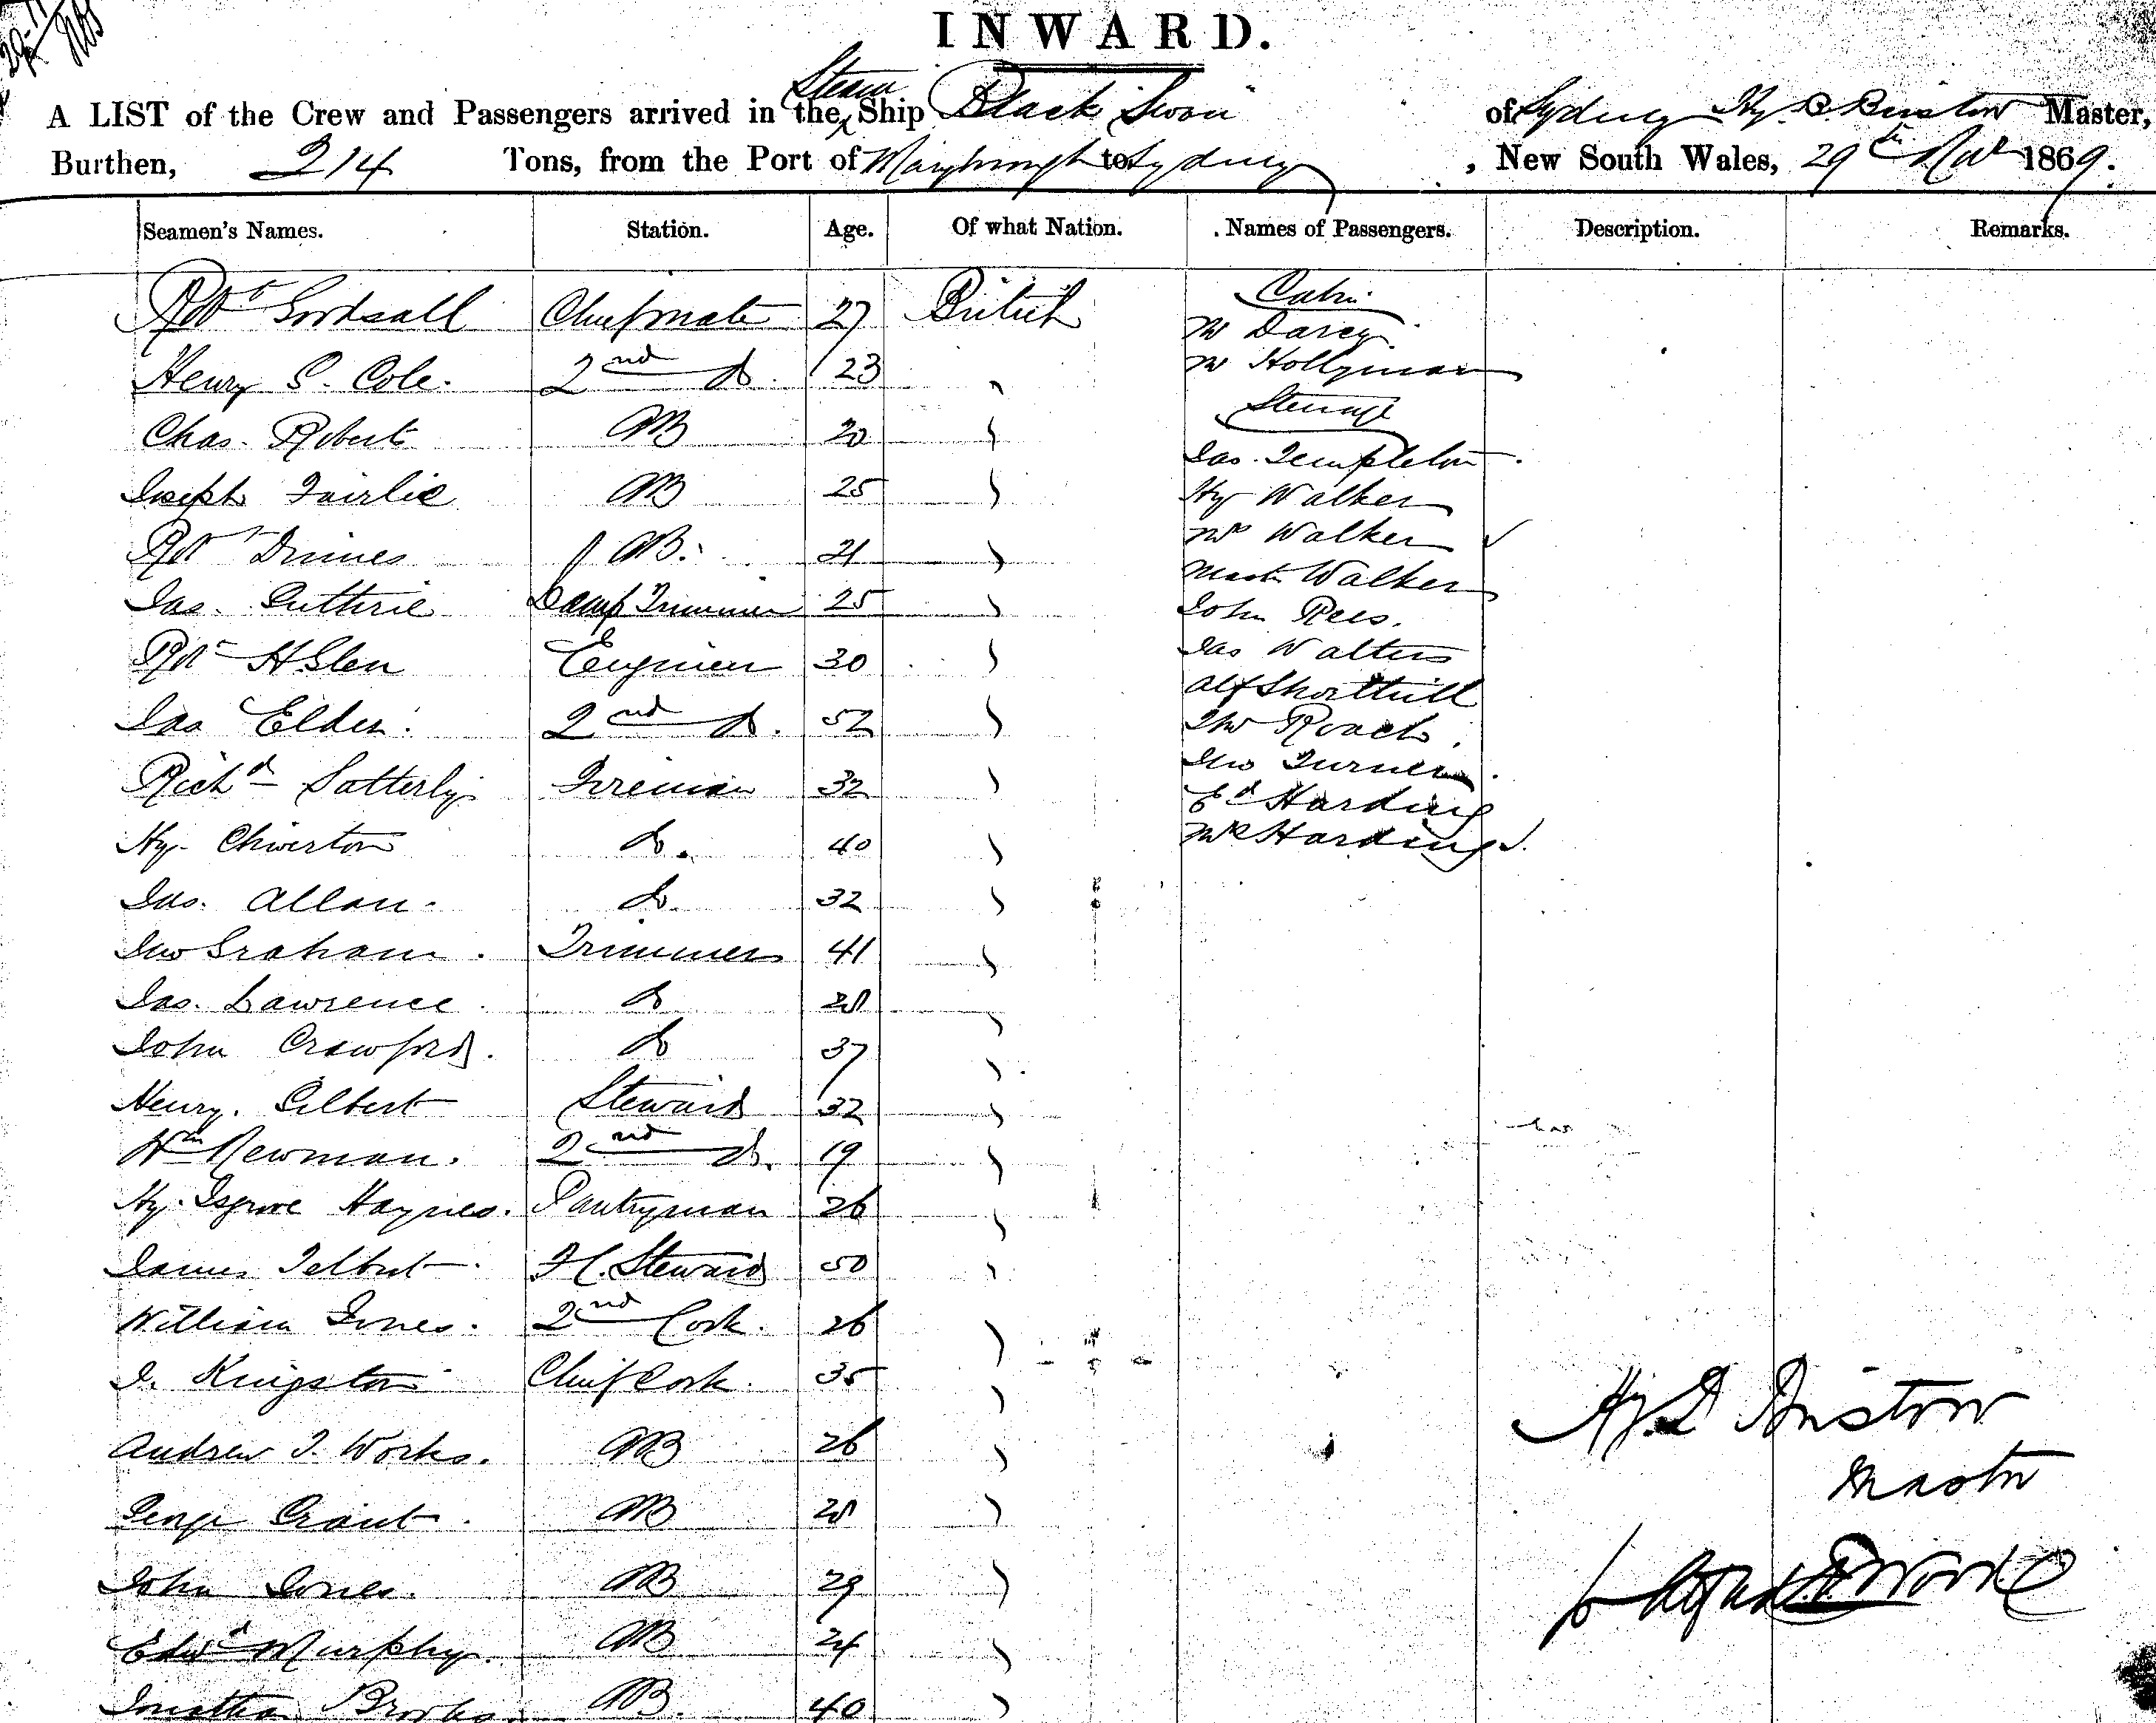 INWARD.
A LIST of the Crew and Passengers arrived in the Steam Ship Black Swan of Sydney Hy. B. Bristow Master,
Burthen, 214 Tons, from the Port of Maryborough to Sydney, New South Wales, 29th Nov 1869.
Seamen's Names. Station. Age. Of what Nation. Names of Passengers. Description. Remarks.
Robt Chief mate 27 British
Henry S. Cole. 2nd Do. 23 "
Chas. Roberts AB 20 "
Joseph Fairlie AB 25 "
Robt AB. 21 "
Jas. Guthrie Lamp Trimmer 25 "
Robt H Glen Engineer 30 "
Jas Elder. 2nd Do. 52 "
Richd Satterly Fireman 32 "
Hy. Chiverton Do. 40 "
Jas. Allan. Do. 32 "
Jno Graham. Trimmer 41 "
Jas. Lawrence Do 28 "
John Crawford. Do 37 "
Henry. Gilbert Steward 32 "
Wm Newman. 2nd Do. 19 "
Hy. Isgrove Haynes. Pantryman 26 "
James Talbut. F.C. Steward 50 "
William Jones. 2nd Cook. 26 "
J. Kingston Chief Cook. 35 "
Andrew J. Works. AB 26 "
George Grant. AB 28 "
John Jones. AB 29 "
Edwd Murphy. AB 24 "
Jonathan Brooks. AB. 40 "
Cabin
Mr Darcy.
Mr Hollyman
Steerage
Jas. Templeton.
Hy Walker
Mrs Walker
Mastr Walker
John Rees.
Jas Walters
Alf Shorthill
Thos Roach.
Jno Turner.
Ed Harding
Mrs Harding
Hy. B Bristow
Master